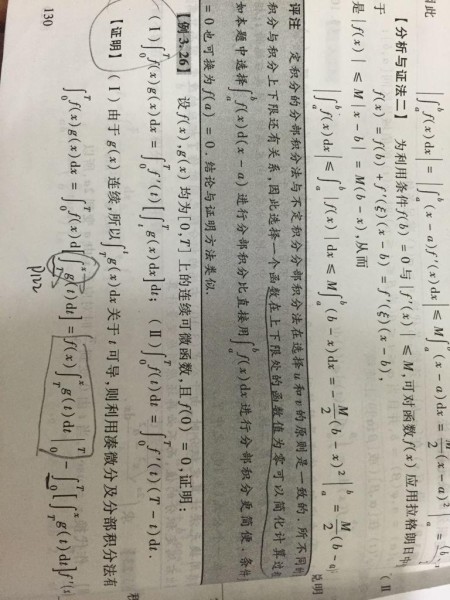 因此
|∫_a^b f(x)dx| = |∫_a^b (x-a)f′(x)dx| ≤ M∫_a^b (x-a)dx = M/2 (x-a)²|_a^b =
【分析与证法二】 为利用条件 f(b) = 0 与 |f′(x)| ≤ M,可对函数 f(x) 应用拉格朗日中
于
f(x) = f(b) + f′(ξ)(x-b) = f′(ξ)(x-b),
是 |f(x)| ≤ M|x-b| = M(b-x),从而
|∫_a^b f(x)dx| ≤ ∫_a^b |f(x)|dx ≤ M∫_a^b (b-x)dx = -M/2 (b-x)²|_a^b = M/2 (b-a)
评注 定积分的分部积分法与不定积分分部积分法在选择 u 和 v 的原则是一致的.所不同
积分与积分上下限还有关系,因此选择一个函数在上下限处的函数值为零可以简化计算过
如本题中选择∫_a^b f(x)d(x-a) 进行分部积分比直接用∫_a^b f(x)dx 进行分部积分更简便.条件
= 0 也可换为 f(a) = 0.结论与证明方法类似.
【例3.26】 设 f(x),g(x) 均为[0,T]上的连续可微函数,且 f(0) = 0,证明:
(Ⅰ)∫_0^T f(x)g(x)dx = ∫_0^T f′(t)[∫_t^T g(x)dx]dt; (Ⅱ)∫_0^T f(t)dt = ∫_0^T f′(t)(T-t)dt.
【证明】 (Ⅰ) 由于 g(x) 连续,所以∫_T^t g(x)dx 关于 t 可导,则利用凑微分及分部积分法有
∫_0^T f(x)g(x)dx = ∫_0^T f(x)d[∫_T^x g(t)dt] = f(x)∫_T^x g(t)dt|_0^T - ∫_0^T[∫_T^x g(t)dt]f′(
130
(Ⅱ
说明
积